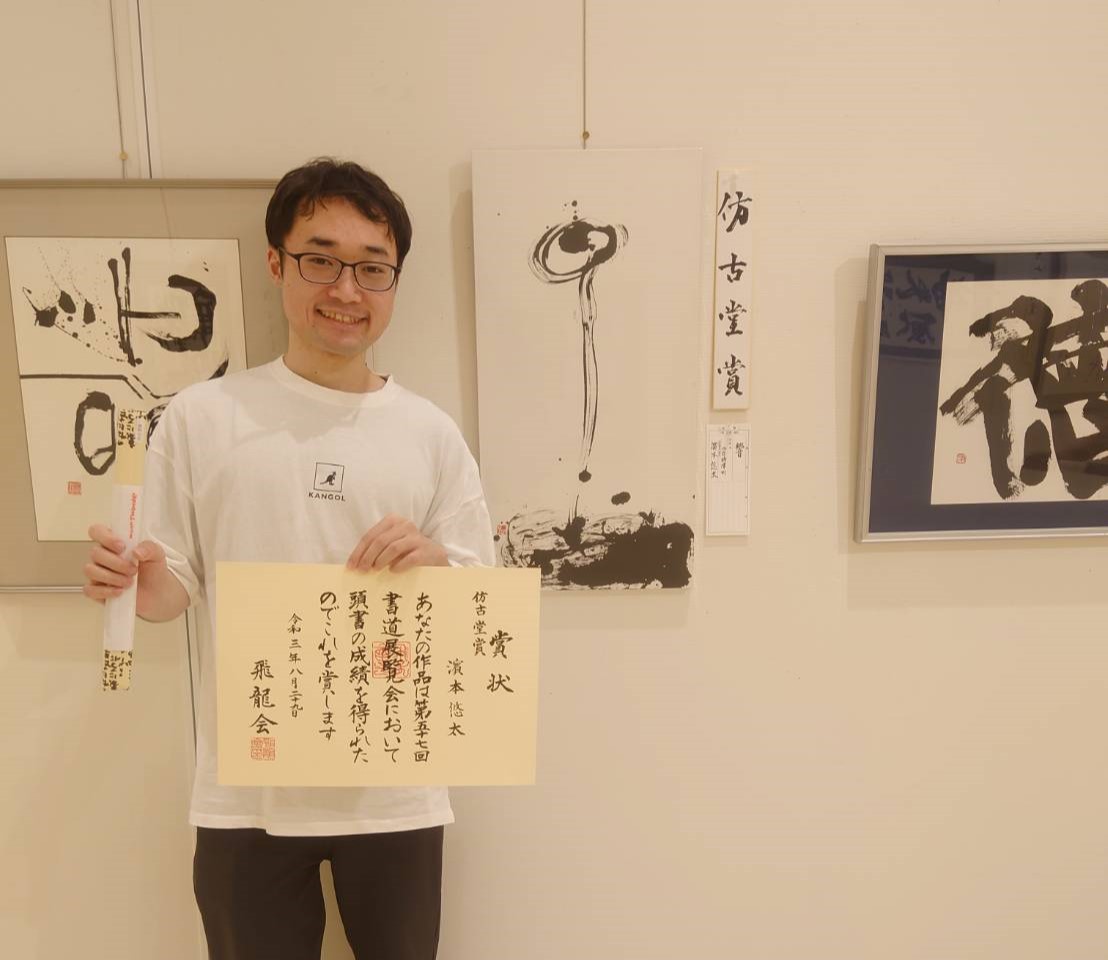 仿古堂賞
響
濵本悠太
KANGOL
賞状
仿古堂賞
濵本悠太
あなたの作品は第五十七回
書道展覧会において
頭書の成績を得られた
のでこれを賞します
令和三年八月二十九日
飛龍会
德